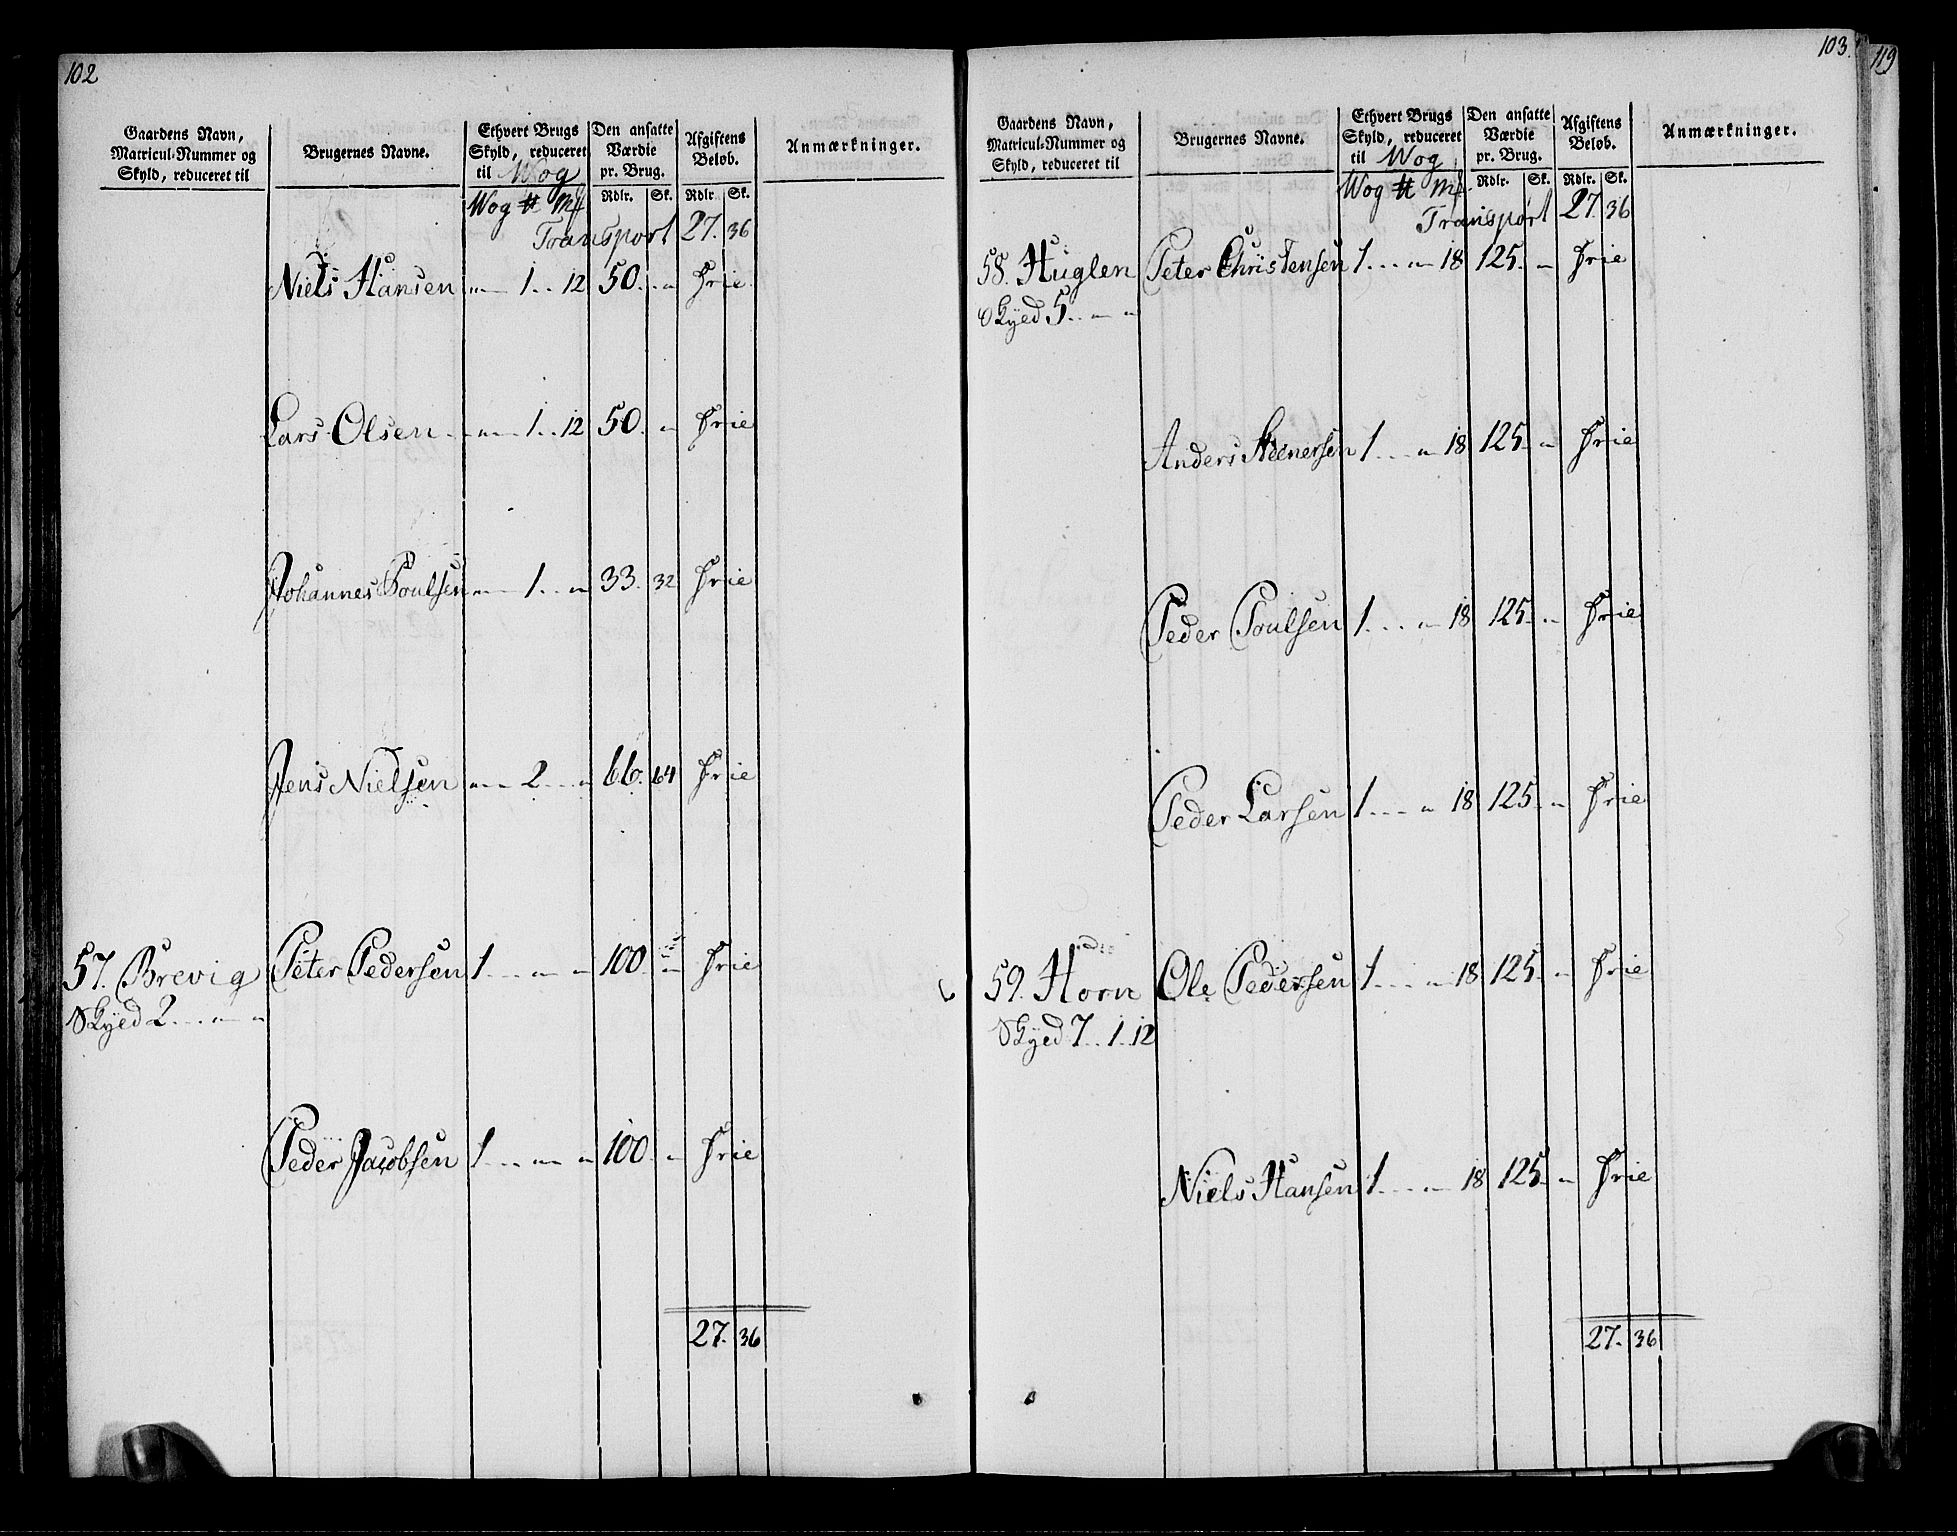 102
Gaardens Navn, Matricul-Nummer og Skyld, reduceret til
Brugernes Navne.
Ethvert Brugs Skyld, reduceret til Wog
Den ansatte Værdie pr. Brug.
Afgiftens Beløb.
Anmærkninger.
Wog ℔ Mk Rdlr. Sk. Rdlr. Sk.
Transport 27. 36
Niels Hansen „ 1 .. 12 50. „ Frie
Lars Olsen „ 1 .. 12 50. „ Frie
Johannes Poulsen „ 1 .. „ 33. 32 Frie
Jens Nielsen „ 2 .. „ 66. 64 Frie
57. Brevig Peter Pedersen 1 .. „ „ 100. „ Frie
Skyld 2 .. „ „
Peder Jacobsen 1 .. „ „ 100. „ Frie
27. 36
103.
119
Gaardens Navn, Matricul-Nummer og Skyld, reduceret til
Brugernes Navne.
Ethvert Brugs Skyld, reduceret til Wog
Den ansatte Værdie pr. Brug.
Afgiftens Beløb.
Anmærkninger.
Wog ℔ Mk. Rdlr. Sk. Rdlr. Sk.
Transport 27. 36
58. Huglen Peter Christensen 1 .. „ 18 125. „ Frie
Skyld 5 .. „ „
Anders Steenersen 1 .. „ 18 125. „ Frie
Peder Poulsen 1 .. „ 18 125. „ Frie
Peder Larsen 1 .. „ 18 125. „ Frie
59. Horn Ole Pedersen 1 .. „ 18 125. „ Frie
Skyld 7 .. 1 .. 12
Niels Hansen 1 .. „ 18 125. „ Frie
27. 36